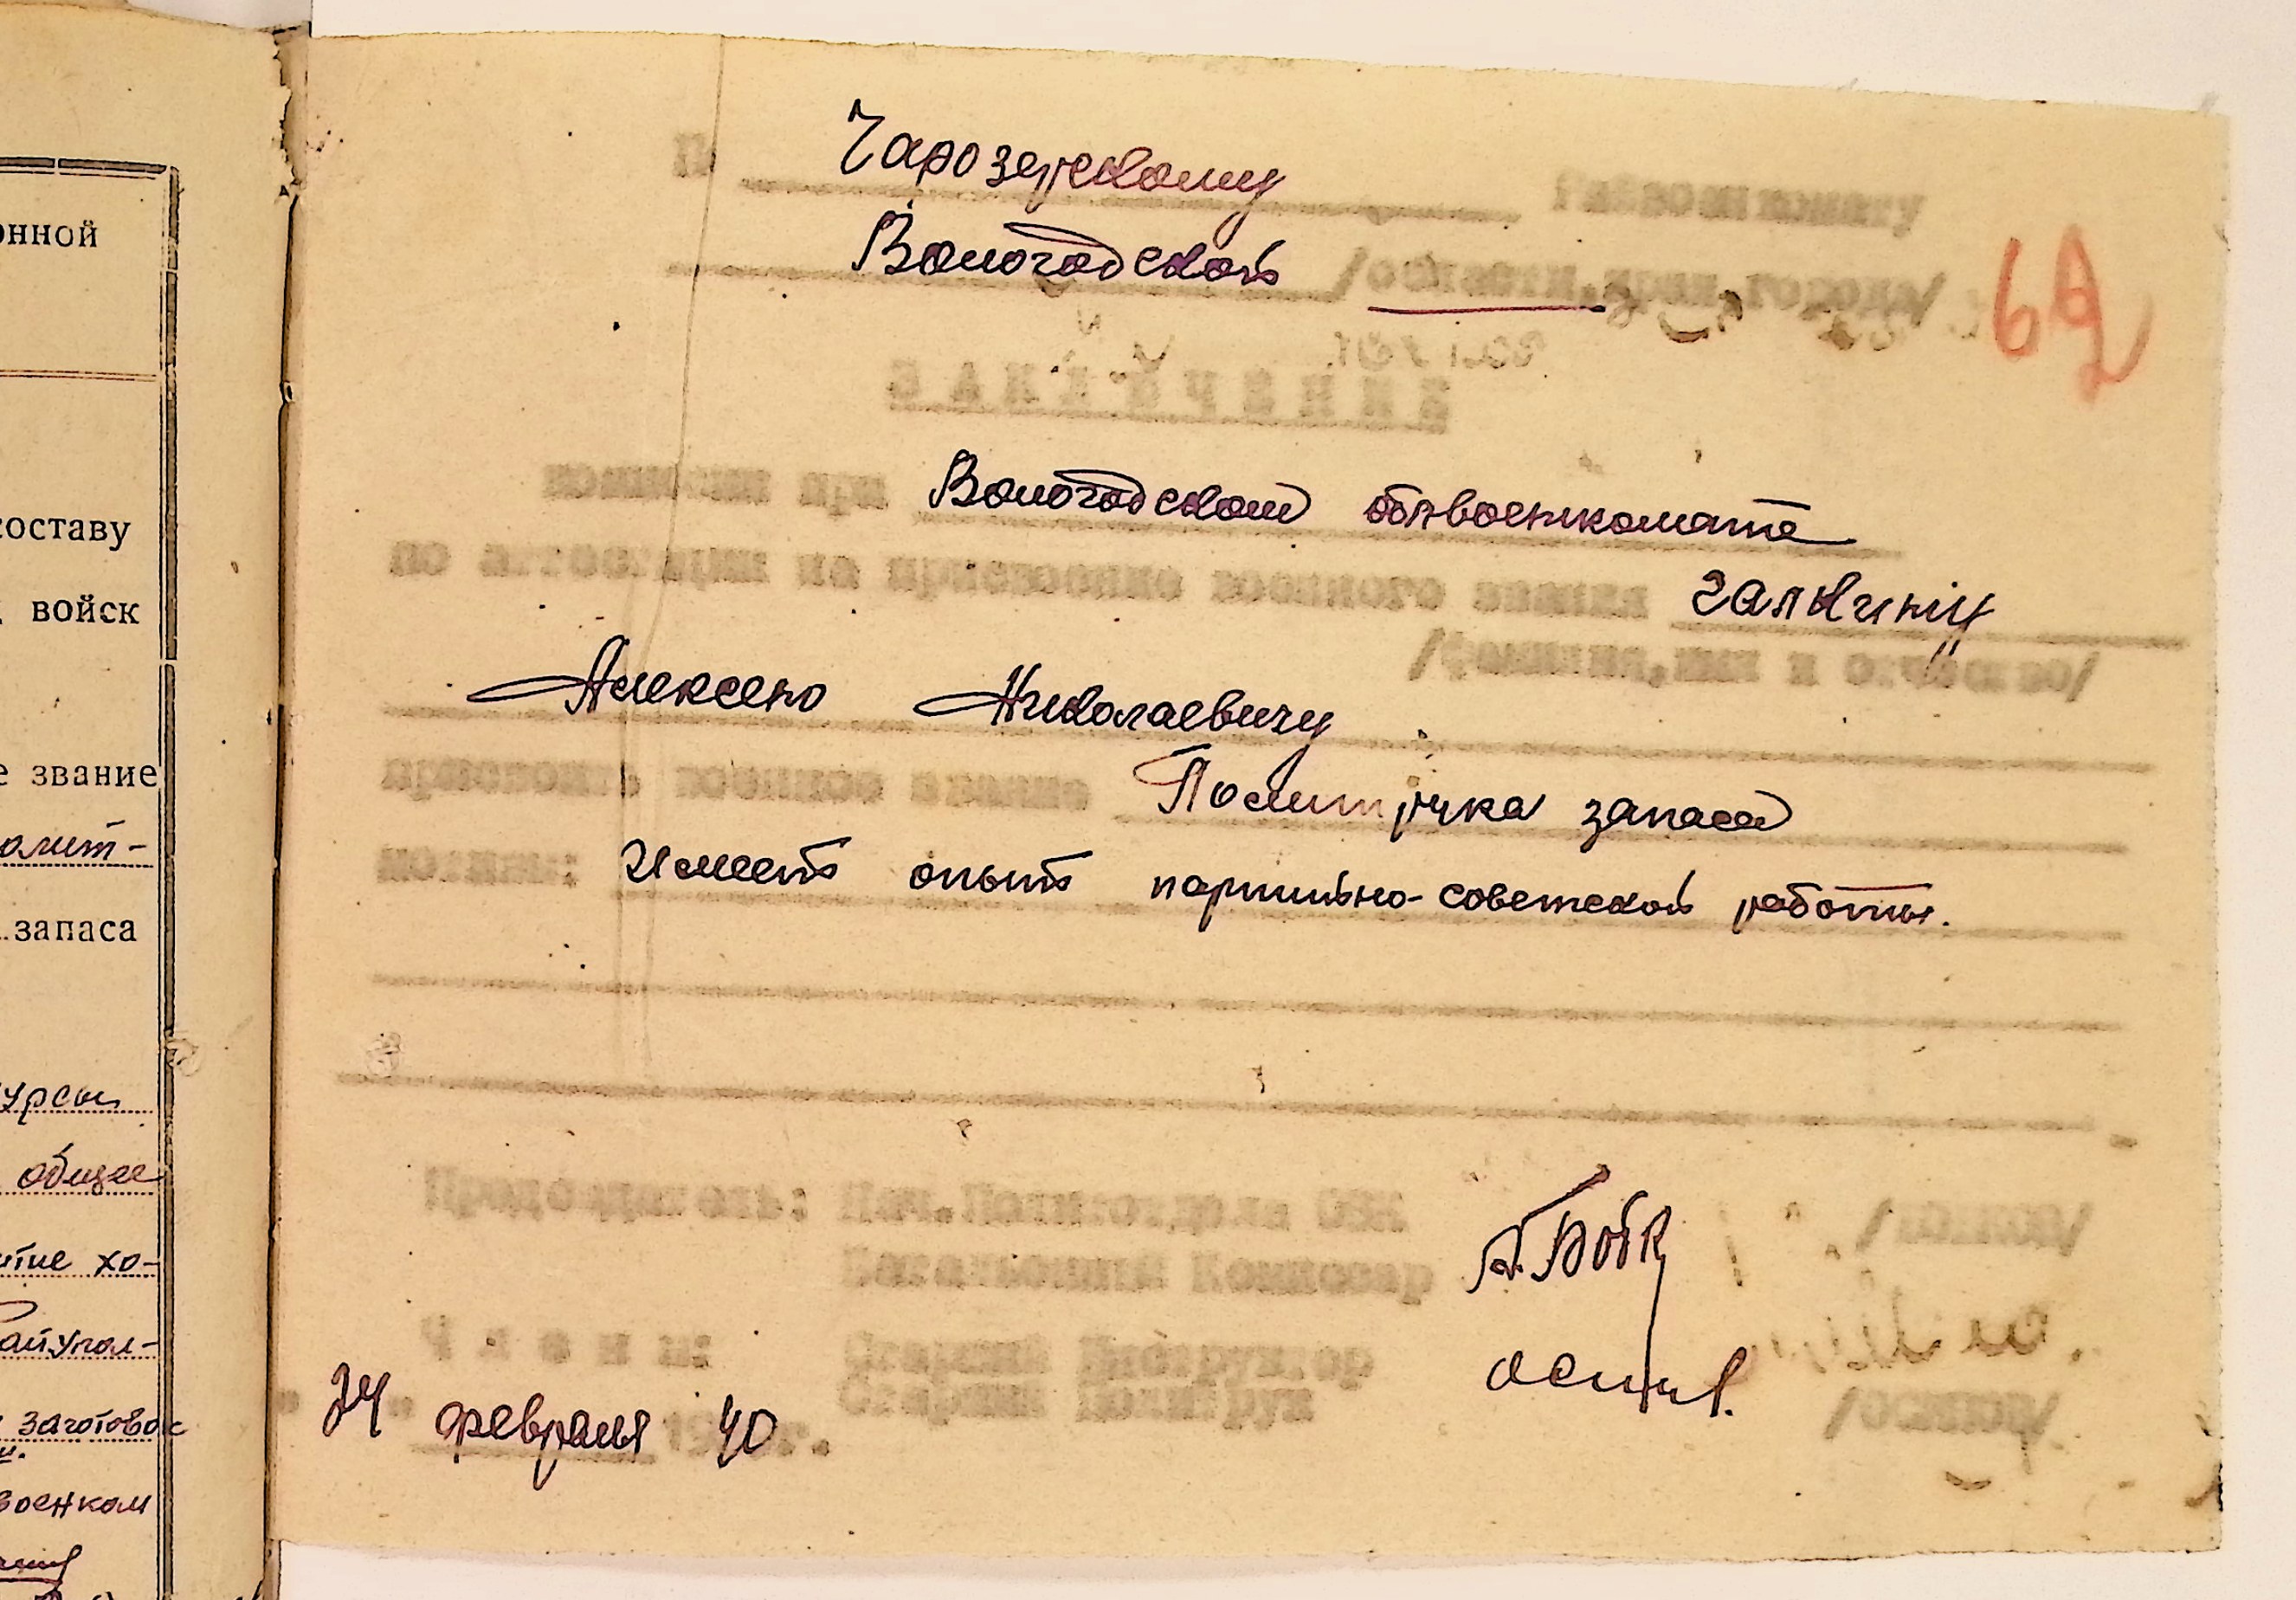 онной
составу
войск
е звание
олит-
запаса
урсы
общее
итие хо-
райупол-
заготовок
военком
Чарозерскому Райвоенкомату
Вологодской /области, края, города/
62
ЗАКЛЮЧЕНИЕ
комиссии при Вологодском облвоенкомате
по аттестации на присвоение военного звания Галкину
/фамилия, имя и отчество/
Алексею Николаевичу
присвоить военное звание Политрука запаса
мотивы: Имеет опыт партийно-советской работы.
Председатель: Нач. Политотдела ОВК
Батальонный Комиссар
Члены: Старший Инструктор
Старший Политрук
24 февраля 1940 г.